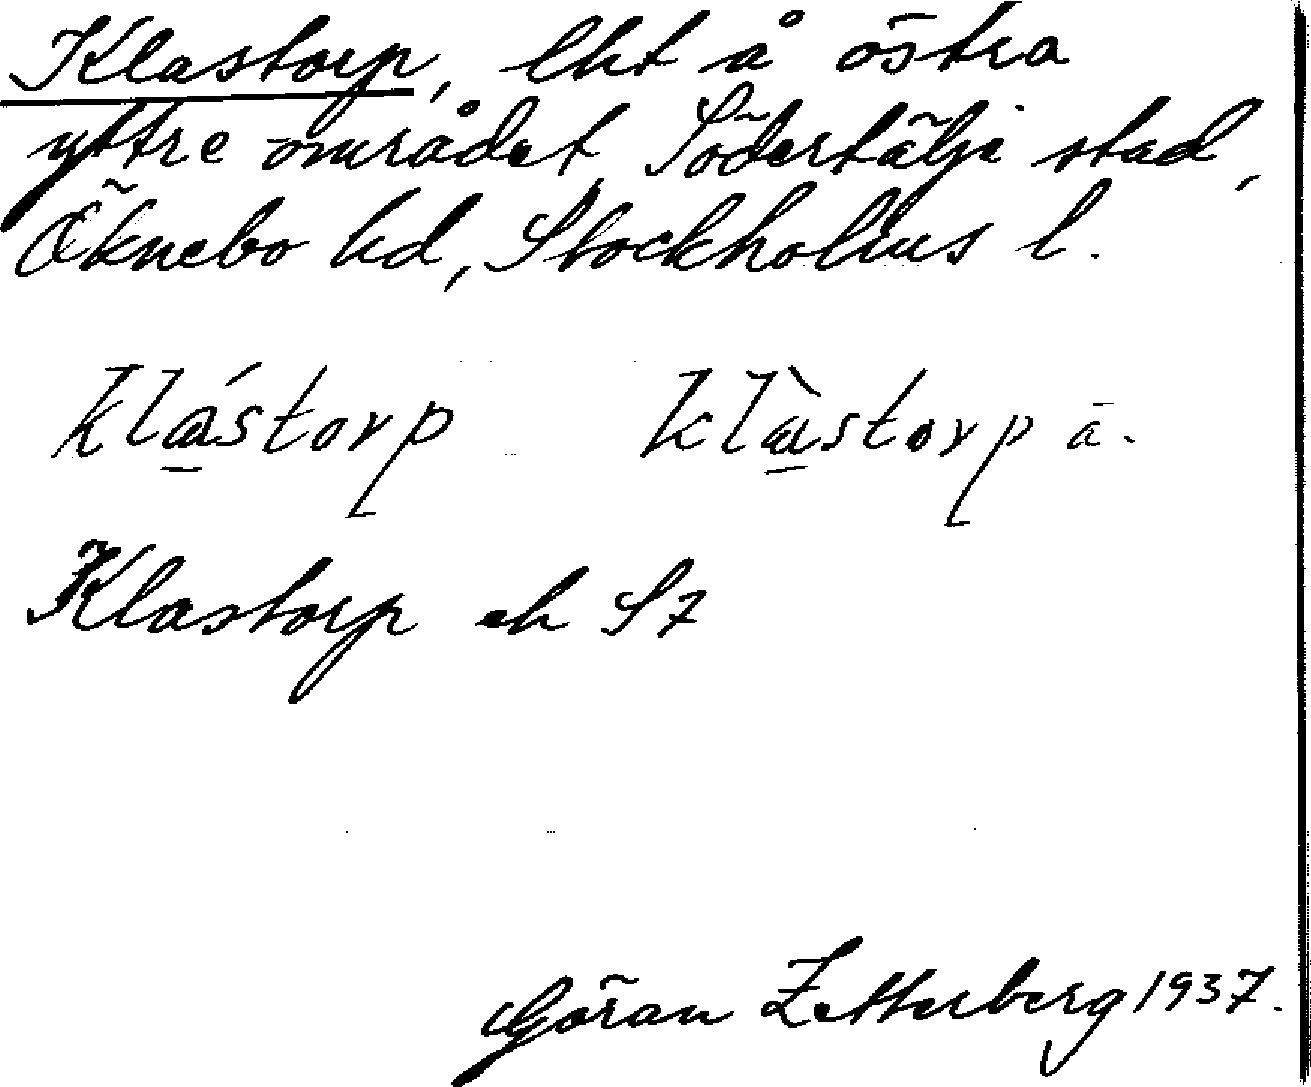 Klastorp, lht å östra
yttre området Södertälje stad,
Öknebo hd, Stockholms l.
klástorp klàstorp ä.
Klastorp ek S7
Göran Zetterberg 1937.